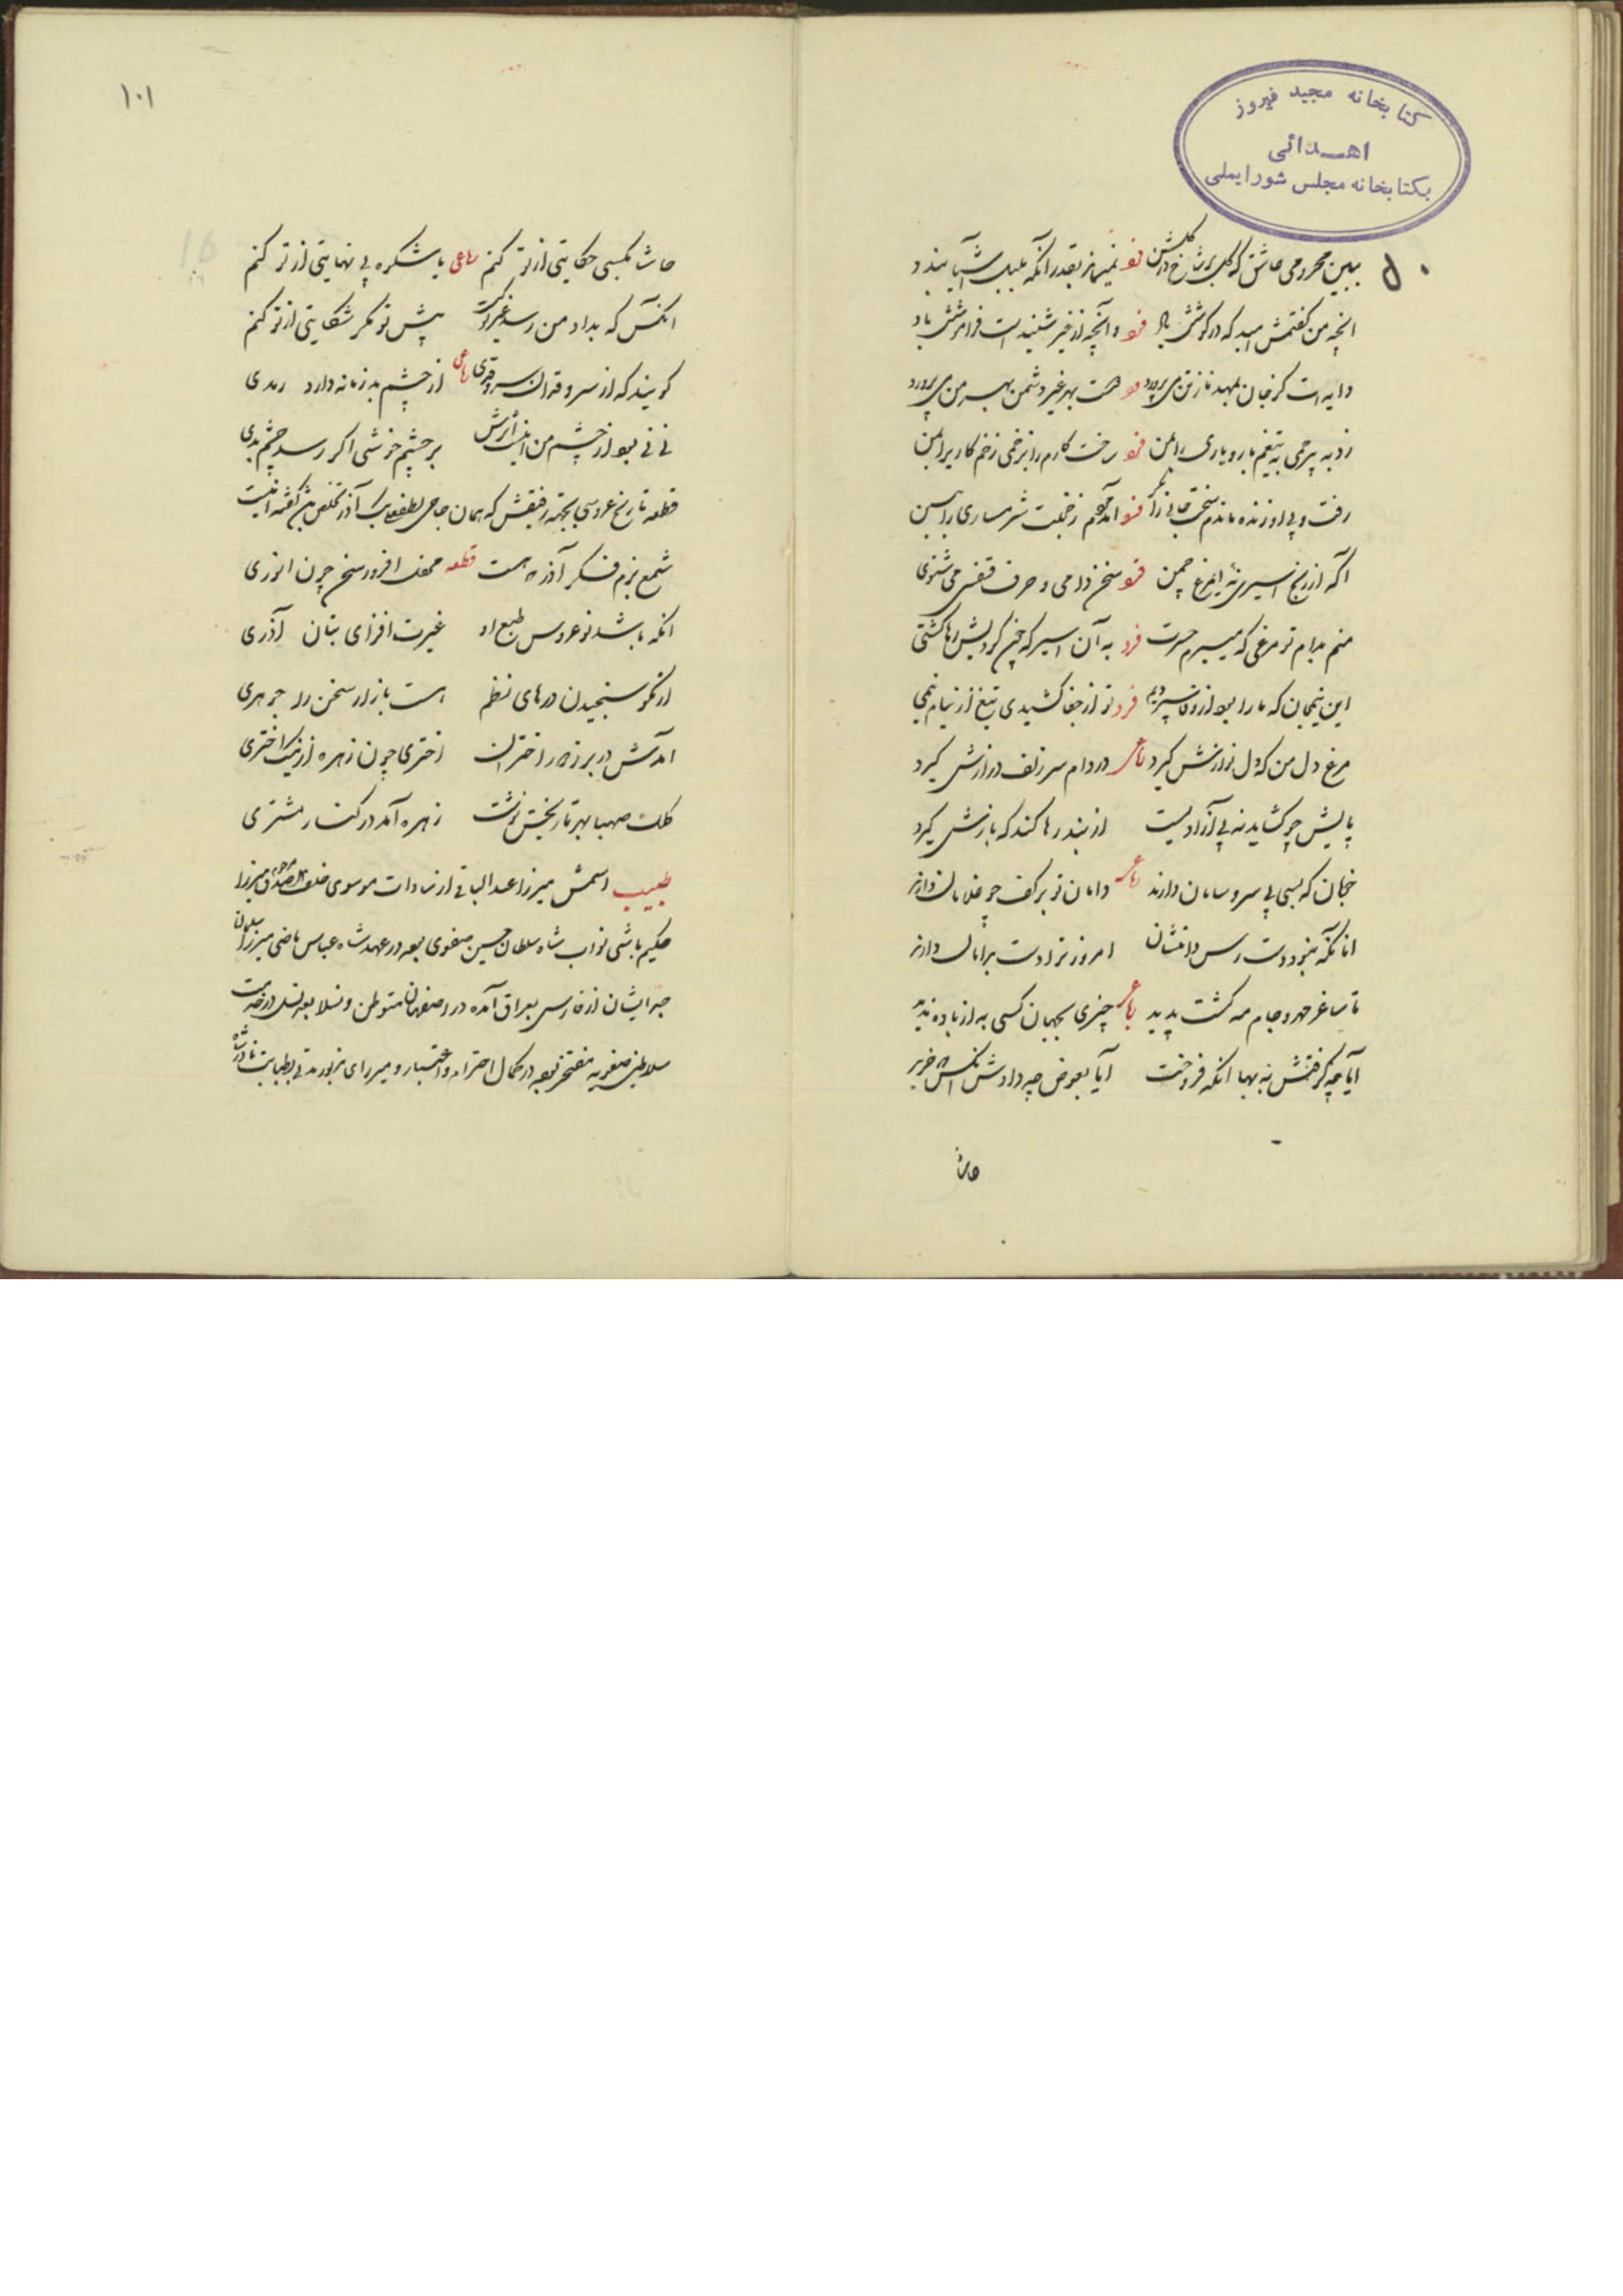 کتابخانه مجید فیروز
اهدائی
بکتابخانه مجلس شورایملی
ببین محرومی عاشق که گل بر شاخ در گلشن فرد نمیماند بقدر آنکه بلبل آشیان بندد
انچه من گفتمش امید که در گوشش باد فرد وانچه از غیر شنیدست فراموشش باد
دایه است کز جان بمهد ناز تن می پرورد هست بهر غیر و دشمن بهر من می پرورد
زد به بیرحمی به تیغم یار و یاری را ببین فرد سخت کارم را بزخمی زخم کاری را ببین
رفت و بی او زنده ماندم سخت جانی را نگر فرد آمد و خجلت شرمساری را ببین
اگه از رنج اسیری نه ایمرغ چمن فرد سخن دامی و حرف قفسی می شنوی
منم بدام تو مرغی که میبرم حسرت فرد به آن اسیر که چون کردیش رها کشتی
این نیمجان که ما را بود از وفا سپردیم فرد تو از جفا کشیدی تیغ از نیام نیمی
مرغ دل من که دل نوازش گیرد رباعی در دام سر زلف درازش گیرد
پایش چو گشاید نه پی آزادیست از بند رها کند که بازش گیرد
خوبان که بسی بی سر و سامان دارند رباعی دامان تو بر کف چو غلامان دارند
انانکه نبود دست رس دامنشان امروز ترا دست بدامان دارند
تا ساغر مهر و جام مه گشت پدید رباعی چیزی بجهان کسی به از باده ندید
آیا چه گرفتش به بها انکه فروخت آیا بعوض چه دادش انکس که خرید
حاشا
۱۰۱
حاشا بکسی حکایتی از تو کنم رباعی یا شکوه بی نهایتی از تو کنم
انکس که بداد من رسد غیر تو کیست پیش تو مگر شکایتی از تو کنم
گویند که از سرو قدان سرو قدی رباعی از چشم بد زمانه دارد رمدی
نی نی بود از چشم من اینست اثرش بر چشم خوشی اگر رسد چشم بدی
قطعه تاریخ عروسی بجهة رفیقش که همان حاجی لطفعلی بیک آذر تخلص بیش گفته اینست
شمع بزم فکر آذر هست قطعه محفل افروز سخن چون انوری
انکه باشد نو عروس طبع او غیرت افزای بتان آذری
از نکو سنجیدن درهای نظم هست بازار سخن را جوهری
امدش در بر ز اختران اختری چون زهره از نیک اختری
کلک صهبا بهر تاریخش نوشت زهره آمد در کنار مشتری
طبیب اسمش میرزا عبد الباقی از سادات موسوی خلف میرزا
حکیم باشی نواب شاه سلطان حسین صفوی بود در عهد شاه عباس ماضی میرزا سلمان
جد ایشان از فارس بعراق آمده در اصفهان متوطن و نسلا بعد نسل در خدمت
سلاطین صفویه مفتخر بوده در کمال احترام و اعتبار و میرزای مزبور مدتی بطبابت نادر شاه